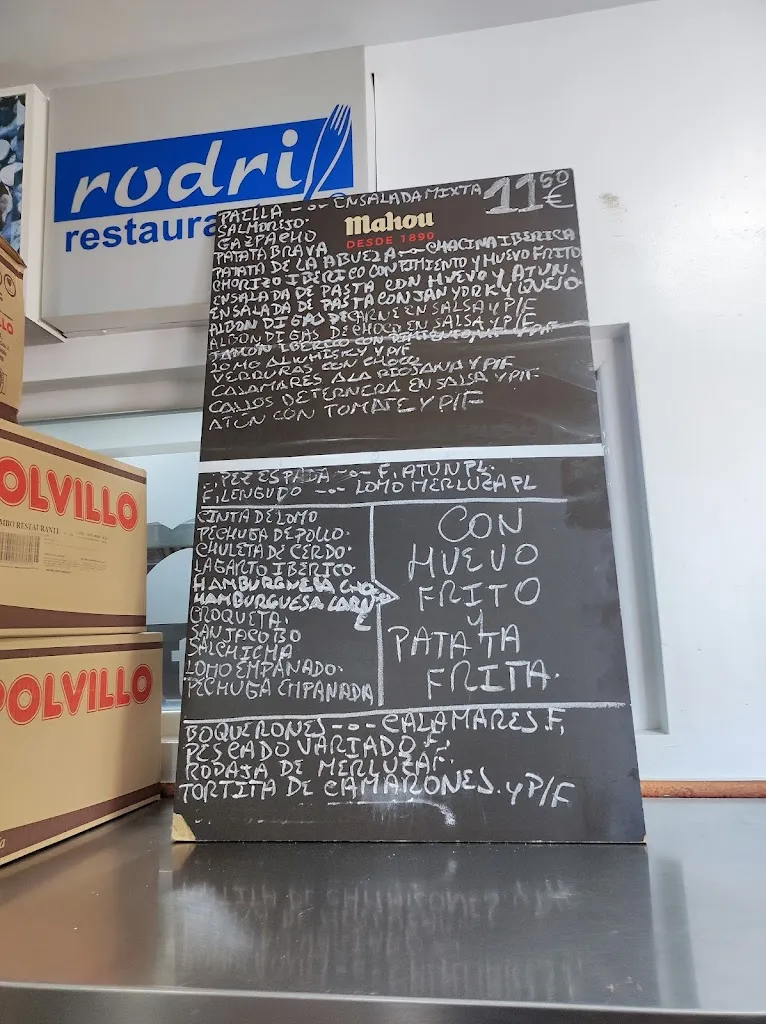 rodri
restaura
PAELLA -o- ENSALADA MIXTA 11'50 €
SALMOREJO.
Mahou
GAZPACHO
DESDE 1890
PATATA BRAVA -o- CHACINA IBERICA
PATATA DE LA ABUELA
CHORIZO IBERICO CON PIMIENTO Y HUEVO FRITO
ENSALADA DE PASTA CON HUEVO Y ATUN.
ENSALADA DE PASTA CON JAN YORK Y QUESO
ALBONDIGAS DE CARNE EN SALSA Y P/F
ALBONDIGAS DE CHOCO EN SALSA Y P/F
JAMON IBERICO CON PIMIENTO Y P/F
LOMO AL WHISKY Y P/F
VERDURAS CON CHOCO
CALAMARES A LA RIOJANA Y P/F
CALLOS DE TERNERA EN SALSA Y P/F
ATÚN CON TOMATE Y P/F
PEZ ESPADA -o- F. ATUN PL.
F. LENGUDO -o- LOMO MERLUZA PL
CINTA DE LOMO
PECHUGA DE POLLO.
CHULETA DE CERDO.
LAGARTO IBERICO.
HAMBURGUESA CHO
HAMBURGUESA CARNE
CROQUETA.
SAN JACOBO
SALCHICHA
LOMO EMPANADO.
PECHUGA EMPANADA
CON
HUEVO
FRITO
Y
PATATA
FRITA.
BOQUERONES -o- CALAMARES F,
PESCADO VARIADO F.
RODAJA DE MERLUZA F.
TORTITA DE CAMARONES. Y P/F
OLVILLO
MBO RESTAURANTE
POLVILLO